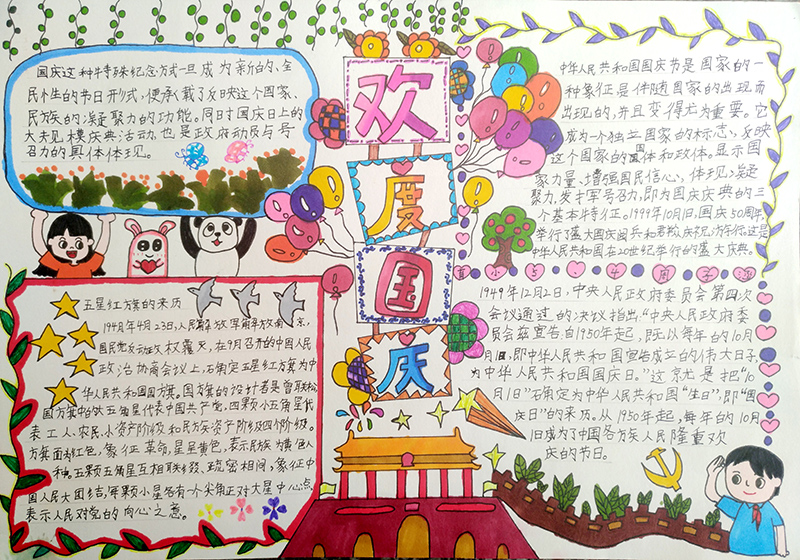 欢
度
国
庆
国庆这种特殊纪念方式一旦成为新的、全
民性的节日形式，便承载了反映这个国家、
民族的凝聚力的功能。同时国庆日上的
大规模庆典活动，也是政府动员与号
召力的具体体现。
五星红旗的来历
1949年4月23日，人民解放军解放南京，
国民党反动政权覆灭，在9月召开的中国人民
政治协商会议上，确定五星红旗为中
华人民共和国国旗。国旗的设计者是曾联松
国方旗中的大五角星代表中国共产党，四颗小五角星代
表工人、农民、小资产阶级和民族资产阶级四个阶级。
方旗面为红色，象征革命，星呈黄色，表示民族为黄色人
种。五颗五角星互相联缀、疏密相间，象征中
国人民大团结，每颗小星各有一个尖角正对大星中心点，
表示人民对党的向心之意。
中华人民共和国国庆节是国家的一
种象征是伴随国家的出现而
出现的，并且变得尤为重要。它
成为一个独立国家的标志，反映
这个国家的国体和政体。显示国
家力量、增强国民信心，体现凝
聚力，发扌军号召力，即为国庆庆典的三
个基本特征。1999年10月1日，国庆50周年，
举行了盛大国庆阅兵和君羊众庆祝方斿行。这是
中华人民共和国在20世纪举行的盛大庆典。
1949年12月2日，中央人民政府委员会第四次
会议通过的决议指出："中央人民政府委
员会兹宣告：自1950年起，即以每年的10月
1日，即中华人民共和国宣告成立的伟大日子
为中华人民共和国国庆日。"这就是把"10
月1日"确定为中华人民共和国"生日"，即"国
庆日"的来历。从1950年起，每年的10月
1日成为了中国各族人民隆重欢
庆的节日。